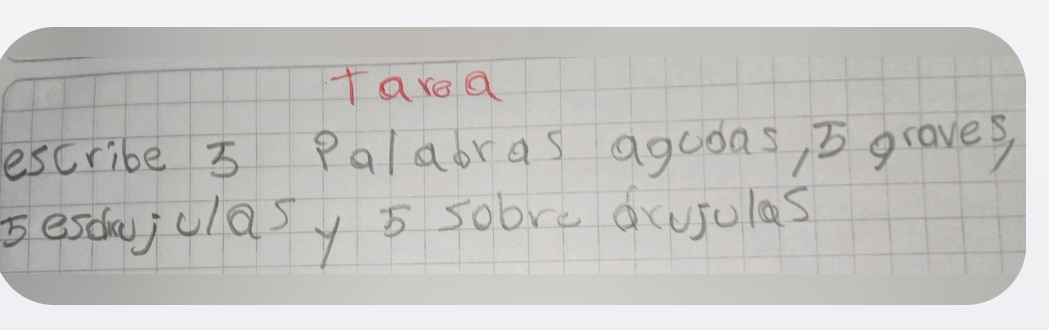 Tarea
escribe 5 Palabras agudas, 5 graves,
5 esdrujulas y 5 sobre drujulas